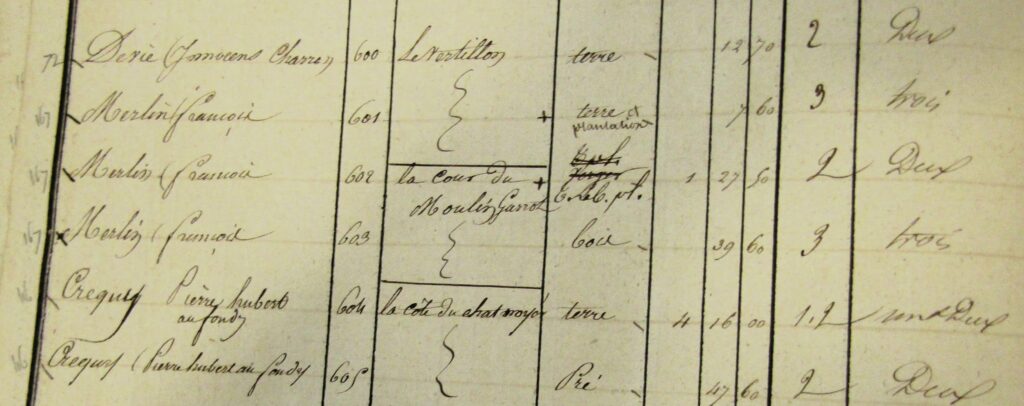 72 Derie (Innocens Charron 600 Le Vertillon terre 12 70 2 Deux
167 Merlin (françois 601 + terre et 7 60 3 trois
plantation
167 Merlin (françois 602 la cour du + 1 27 50 2 Deux
Moulin Garrot
167 Merlin (françois 603 bois 39 60 3 trois
Crequy Pierre hubert 604 la côte du chat noyé terre 4 16 00 1.2 un & Deux
au fondy
Crequy (Pierre hubert au fondy 605 Pré 47 60 2 Deux